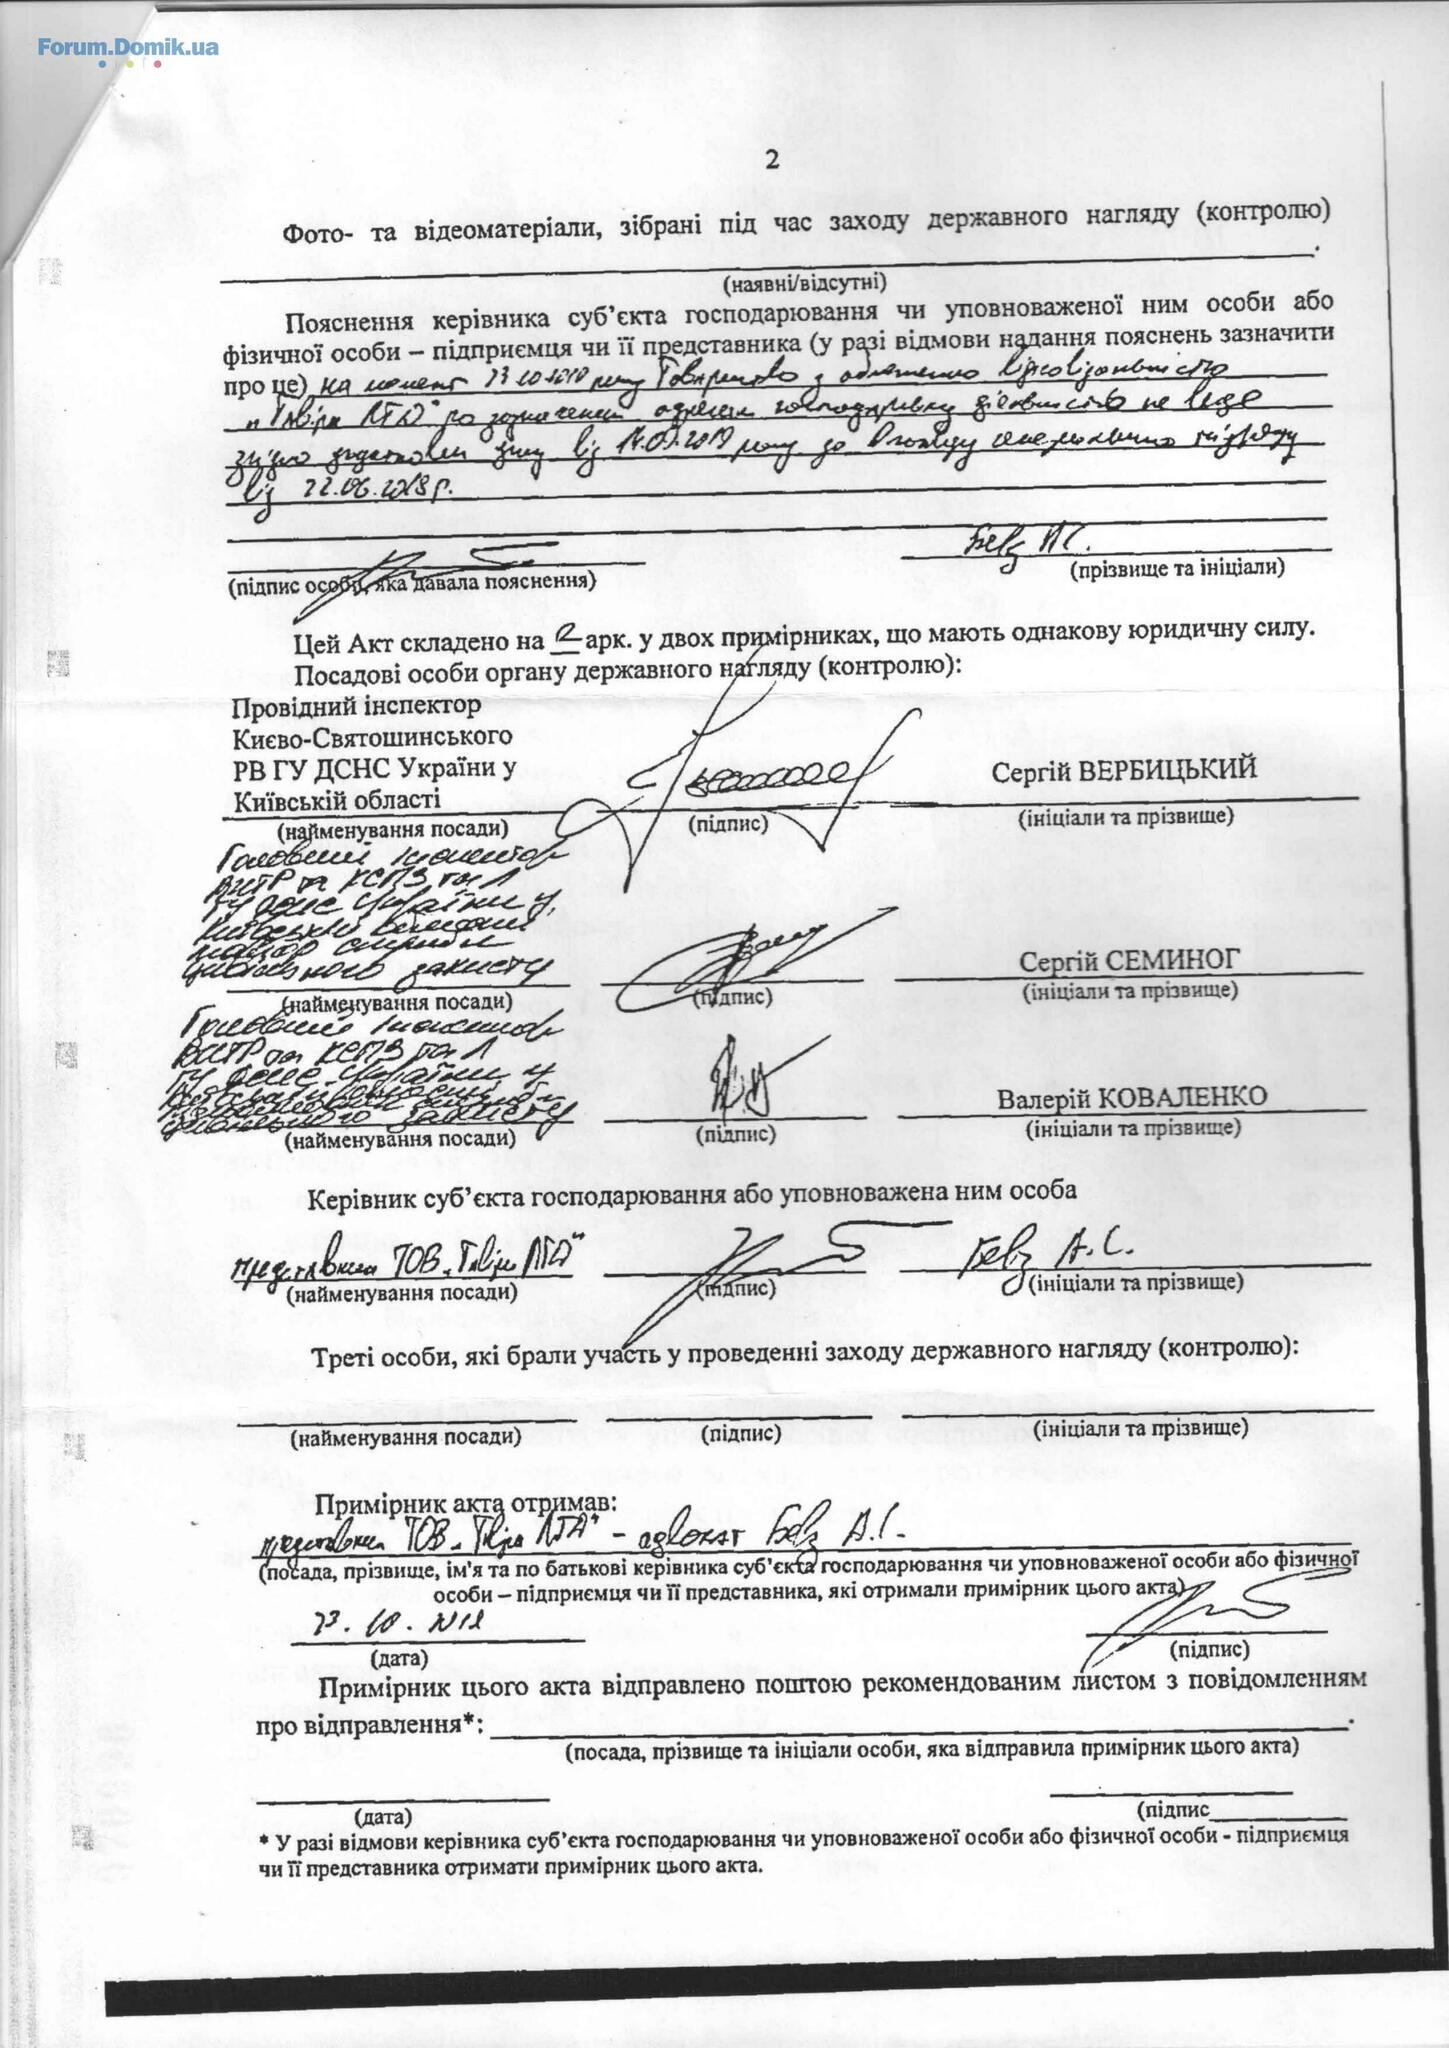 Forum.Domik.ua
2
Фото- та відеоматеріали, зібрані під час заходу державного нагляду (контролю)
.
(наявні/відсутні)
Пояснення керівника суб’єкта господарювання чи уповноваженої ним особи або
фізичної особи – підприємця чи її представника (у разі відмови надання пояснень зазначити
про це) на момент 23.10.2019 року Товариство з обмеженою відповідальністю
"Твіра ЛТД" за зазначеною адресою господарську діяльність не веде
згідно додаткової угоди від 14.05.2019 року до договору генерального підряду
від 22.06.2018р.
Бевз А.С.
(підпис особи, яка давала пояснення) (прізвище та ініціали)
Цей Акт складено на 2 арк. у двох примірниках, що мають однакову юридичну силу.
Посадові особи органу державного нагляду (контролю):
Провідний інспектор
Києво-Святошинського
РВ ГУ ДСНС України у
Київській області Сергій ВЕРБИЦЬКИЙ
(найменування посади) (підпис) (ініціали та прізвище)
Головний інспектор
та КСПЗ та
ГУ ДСНС України у
Київській області
служби
цивільного захисту Сергій СЕМИНОГ
(найменування посади) (підпис) (ініціали та прізвище)
Головний інспектор
та КСПЗ та
ГУ ДСНС України у
цивільного захисту Валерій КОВАЛЕНКО
(найменування посади) (підпис) (ініціали та прізвище)
Керівник суб’єкта господарювання або уповноважена ним особа
представник ТОВ "Твіра ЛТД" Бевз А.С.
(найменування посади) (підпис) (ініціали та прізвище)
Треті особи, які брали участь у проведенні заходу державного нагляду (контролю):
(найменування посади) (підпис) (ініціали та прізвище)
Примірник акта отримав:
представник ТОВ "Твіра ЛТД" - адвокат Бевз А.С.
(посада, прізвище, ім'я та по батькові керівника суб’єкта господарювання чи уповноваженої особи або фізичної
особи – підприємця чи її представника, які отримали примірник цього акта)
23.10.2019
(дата) (підпис)
Примірник цього акта відправлено поштою рекомендованим листом з повідомленням
про відправлення*: .
(посада, прізвище та ініціали особи, яка відправила примірник цього акта)
(дата) (підпис
* У разі відмови керівника суб’єкта господарювання чи уповноваженої особи або фізичної особи - підприємця
чи її представника отримати примірник цього акта.